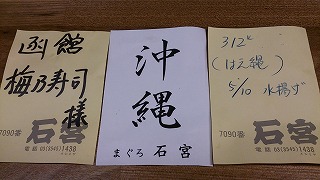 函館
梅乃寿司
様
7090番
石宮
電話 03(3545)1438
沖縄
まぐろ 石宮
312k
(はえ縄)
5/10 水揚げ
7090番
石宮
電話 03(3545)1438